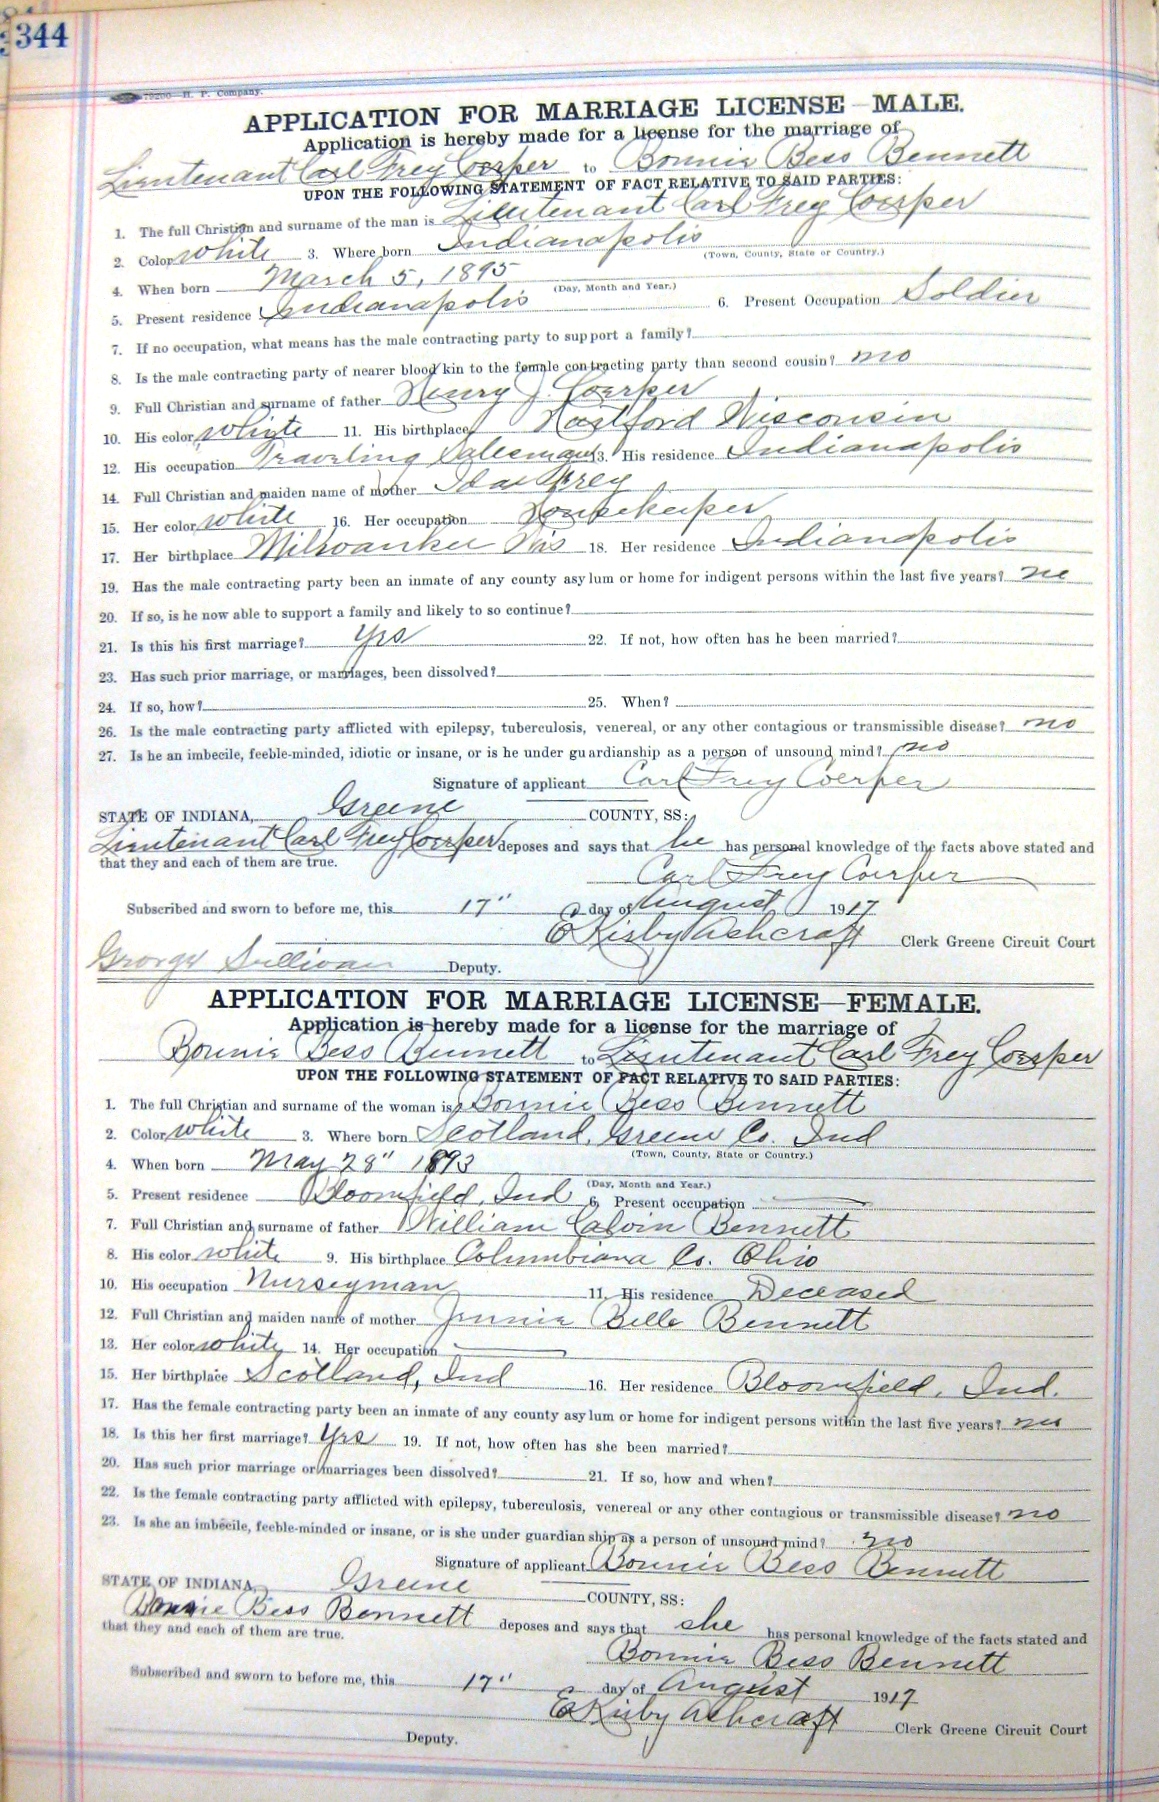 344
79200—H. P. Company.
APPLICATION FOR MARRIAGE LICENSE—MALE.
Application is hereby made for a license for the marriage of
Lieutenant Carl Frey Coerper to Bonnie Bess Bennett
UPON THE FOLLOWING STATEMENT OF FACT RELATIVE TO SAID PARTIES:
1. The full Christian and surname of the man is Lieutenant Carl Frey Coerper
2. Color white 3. Where born Indianapolis
(Town, County, State or Country.)
4. When born March 5, 1895
(Day, Month and Year.)
5. Present residence Indianapolis 6. Present Occupation Soldier
7. If no occupation, what means has the male contracting party to support a family?
8. Is the male contracting party of nearer blood kin to the female contracting party than second cousin? no
9. Full Christian and surname of father Henry J. Coerper
10. His color white 11. His birthplace Hartford Wisconsin
12. His occupation Traveling Salesman 13. His residence Indianapolis
14. Full Christian and maiden name of mother Ida Frey
15. Her color white 16. Her occupation Housekeeper
17. Her birthplace Milwaukee Wis 18. Her residence Indianapolis
19. Has the male contracting party been an inmate of any county asylum or home for indigent persons within the last five years? no
20. If so, is he now able to support a family and likely to so continue?
21. Is this his first marriage? Yes 22. If not, how often has he been married?
23. Has such prior marriage, or marriages, been dissolved?
24. If so, how? 25. When?
26. Is the male contracting party afflicted with epilepsy, tuberculosis, venereal, or any other contagious or transmissible disease? no
27. Is he an imbecile, feeble-minded, idiotic or insane, or is he under guardianship as a person of unsound mind? no
Signature of applicant Carl Frey Coerper
STATE OF INDIANA, Greene COUNTY, SS:
Lieutenant Carl Frey Coerper deposes and says that he has personal knowledge of the facts above stated and
that they and each of them are true.
Carl Frey Coerper
Subscribed and sworn to before me, this 17" day of August 1917
E Kirby Ashcraft Clerk Greene Circuit Court
George Sullivan Deputy.
APPLICATION FOR MARRIAGE LICENSE—FEMALE.
Application is hereby made for a license for the marriage of
Bonnie Bess Bennett to Lieutenant Carl Frey Coerper
UPON THE FOLLOWING STATEMENT OF FACT RELATIVE TO SAID PARTIES:
1. The full Christian and surname of the woman is Bonnie Bess Bennett
2. Color white 3. Where born Scotland, Greene Co. Ind
(Town, County, State or Country.)
4. When born May 28" 1893
(Day, Month and Year.)
5. Present residence Bloomfield, Ind 6. Present occupation
7. Full Christian and surname of father William Calvin Bennett
8. His color white 9. His birthplace Columbiana Co. Ohio
10. His occupation Nurseyman 11. His residence Deceased
12. Full Christian and maiden name of mother Jennie Belle Bennett
13. Her color white 14. Her occupation
15. Her birthplace Scotland, Ind 16. Her residence Bloomfield, Ind.
17. Has the female contracting party been an inmate of any county asylum or home for indigent persons within the last five years? no
18. Is this her first marriage? Yes 19. If not, how often has she been married?
20. Has such prior marriage or marriages been dissolved? 21. If so, how and when?
22. Is the female contracting party afflicted with epilepsy, tuberculosis, venereal or any other contagious or transmissible disease? no
23. Is she an imbecile, feeble-minded or insane, or is she under guardianship as a person of unsound mind? no
Signature of applicant Bonnie Bess Bennett
STATE OF INDIANA, Greene COUNTY, SS:
Bonnie Bess Bennett deposes and says that she has personal knowledge of the facts stated and
that they and each of them are true.
Bonnie Bess Bennett
Subscribed and sworn to before me, this 17" day of August 1917
E Kirby Ashcraft Clerk Greene Circuit Court
Deputy.